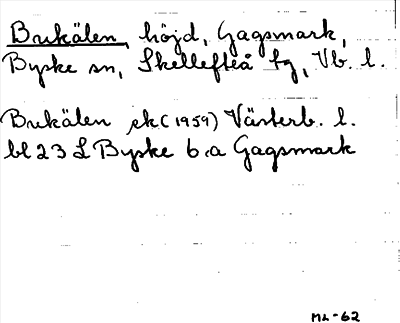 Brukälen, höjd, Gagsmark,
Byske sn, Skellefteå tg, Vb. l.
Brukälen ek (1959) Västerb. l.
bl 23 L Byske 6 a Gagsmark
ML-62